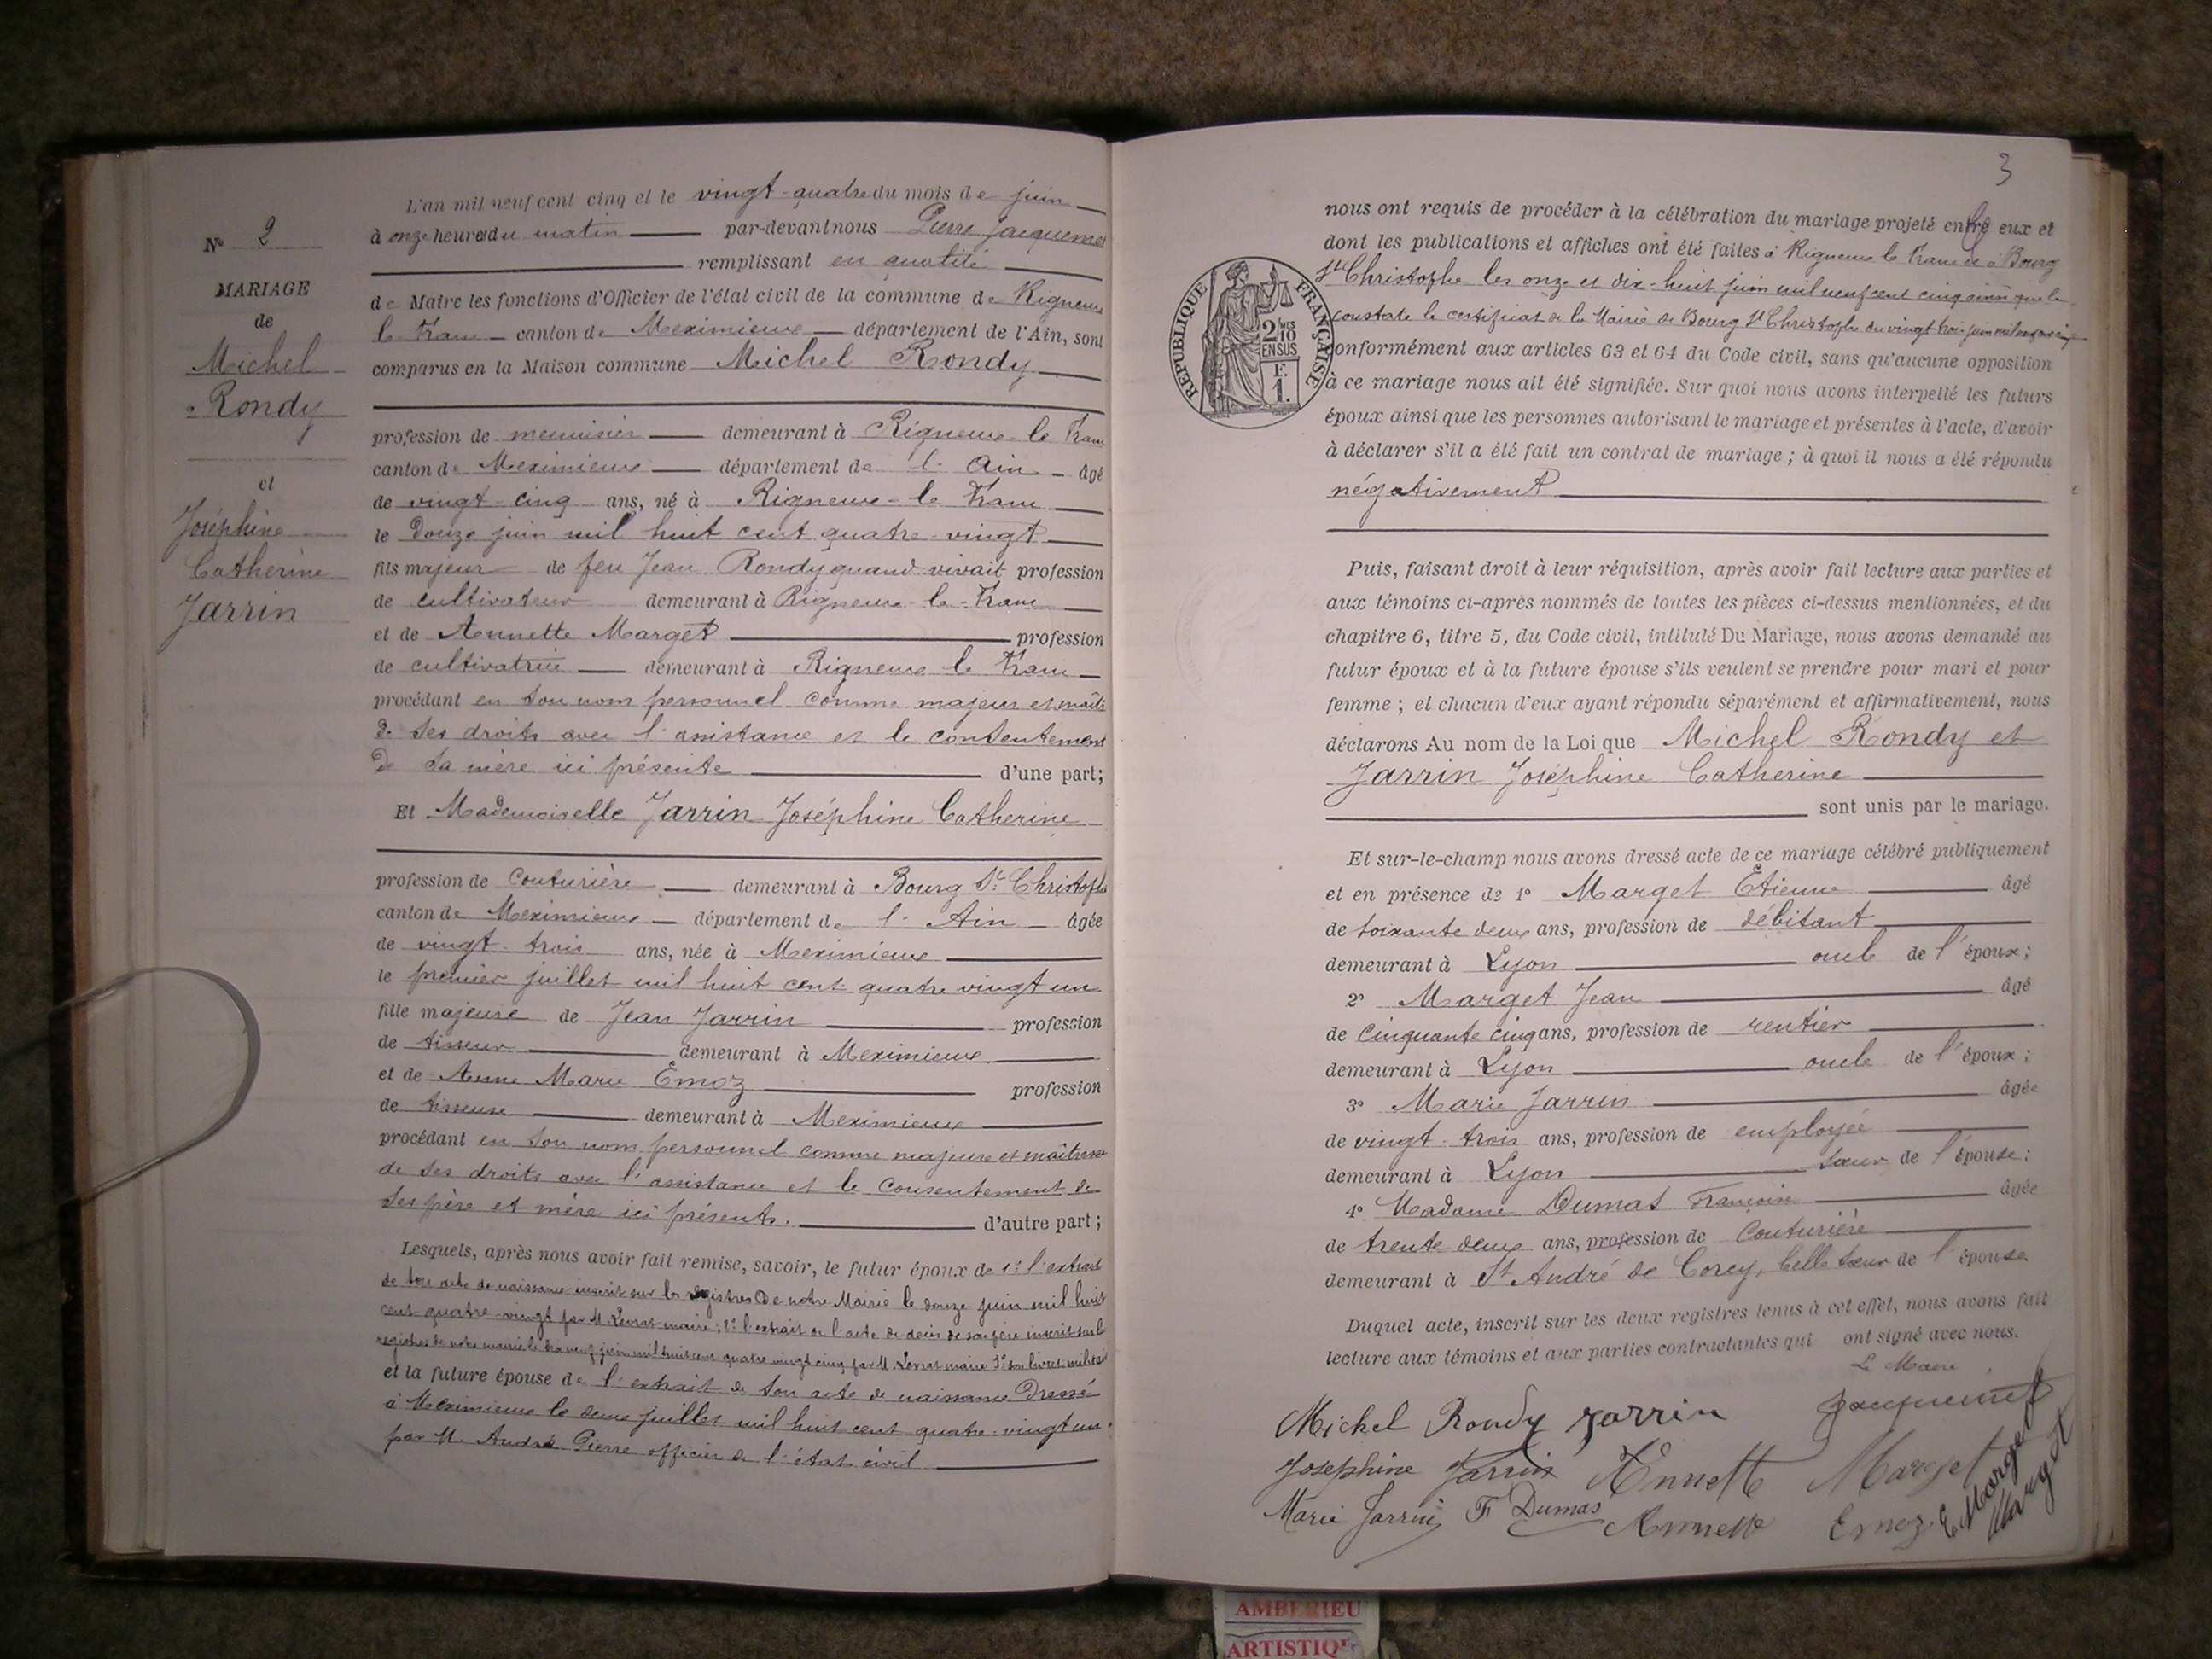 N° 2
MARIAGE
de
Michel
Rondy
et
Joséphine
Catherine
Jarrin
L'an mil neuf cent cinq et le vingt-quatre du mois de juin
à onze heures du matin par-devant nous Pierre Jacquemet
remplissant en qualité
de Maire les fonctions d'Officier de l'état civil de la commune de Rigneux
le Franc canton de Meximieux département de l'Ain, sont
comparus en la Maison commune Michel Rondy
profession de menuisier demeurant à Rigneux-le Franc
canton de Meximieux département de l'Ain âgé
de vingt-cinq ans, né à Rigneux-le Franc
le douze juin mil huit cent quatre-vingt
fils majeur de feu Jean Rondy quand vivait profession
de cultivateur demeurant à Rigneux-le-Franc
et de Annette Marget profession
de cultivatrice demeurant à Rigneux le Franc
procédant en son nom personnel comme majeur et maître
de ses droits avec l'assistance et le consentement
de sa mère ici présente d'une part;
Et Mademoiselle Jarrin Joséphine Catherine
profession de couturière demeurant à Bourg St Christophe
canton de Meximieux département de l'Ain âgée
de vingt-trois ans, née à Meximieux
le premier juillet mil huit cent quatre vingt un
fille majeure de Jean Jarrin profession
de tisseur demeurant à Meximieux
et de Anne Marie Emoz profession
de tisseuse demeurant à Meximieux
procédant en son nom personnel comme majeure et maîtresse
de ses droits avec l'assistance et le consentement de
ses père et mère ici présents. d'autre part;
Lesquels, après nous avoir fait remise, savoir, le futur époux de 1° l'extrait
de son acte de naissance inscrit sur les registres de notre Mairie le douze juin mil huit
cent quatre-vingt par M. Levrat maire; 2° l'extrait de l'acte de décès de son père inscrit sur les
registres de notre mairie le juin mil huit cent quatre vingt cinq par M. Levrat maire 3° son livret militaire
et la future épouse de l'extrait de son acte de naissance dressé
à Meximieux le deux juillet mil huit cent quatre-vingt un
par M. André Pierre officier de l'état civil
3
nous ont requis de procéder à la célébration du mariage projeté entre eux et
dont les publications et affiches ont été faites à Rigneux le Franc et à Bourg
St Christophe les onze et dix-huit juin mil neuf cent cinq ainsi que le
constate le certificat de la Mairie de Bourg St Christophe du vingt trois juin mil neuf cent cinq
conformément aux articles 63 et 64 du Code civil, sans qu'aucune opposition
à ce mariage nous ait été signifiée. Sur quoi nous avons interpellé les futurs
époux ainsi que les personnes autorisant le mariage et présentes à l'acte, d'avoir
à déclarer s'il a été fait un contrat de mariage; à quoi il nous a été répondu
négativement
RÉPUBLIQUE FRANÇAISE
2/10 MES
EN SUS
F.
1.
Puis, faisant droit à leur réquisition, après avoir fait lecture aux parties et
aux témoins ci-après nommés de toutes les pièces ci-dessus mentionnées, et du
chapitre 6, titre 5, du Code civil, intitulé Du Mariage, nous avons demandé au
futur époux et à la future épouse s'ils veulent se prendre pour mari et pour
femme; et chacun d'eux ayant répondu séparément et affirmativement, nous
déclarons Au nom de la Loi que Michel Rondy et
Jarrin Joséphine Catherine
sont unis par le mariage.
Et sur-le-champ nous avons dressé acte de ce mariage célébré publiquement
et en présence de 1° Marget Etienne âgé
de soixante deux ans, profession de débitant
demeurant à Lyon oncle de l'époux;
2° Marget Jean âgé
de cinquante cinq ans, profession de rentier
demeurant à Lyon oncle de l'époux;
3° Marie Jarrin âgée
de vingt-trois ans, profession de employée
demeurant à Lyon sœur de l'épouse;
4° Madame Dumas Francoise âgée
de trente deux ans, profession de couturière
demeurant à St André de Corcy, belle sœur de l'épouse
Duquel acte, inscrit sur les deux registres tenus à cet effet, nous avons fait
lecture aux témoins et aux parties contractantes qui ont signé avec nous.
Le Maire
Michel Rondy Jarrin Jacquemet
Josephine Jarrin Annette Marget
Marie Jarrin F Dumas Annette Emoz E Marget
Marget
AMBERIEU
ARTISTIQUE